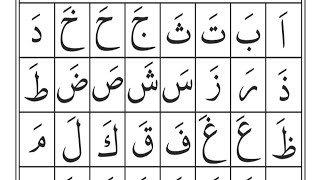 اَ بَ تَ ثَ جَ حَ خَ دَ
ذَ رَ زَ سَ شَ صَ ضَ طَ
ظَ عَ غَ فَ قَ كَ لَ مَ